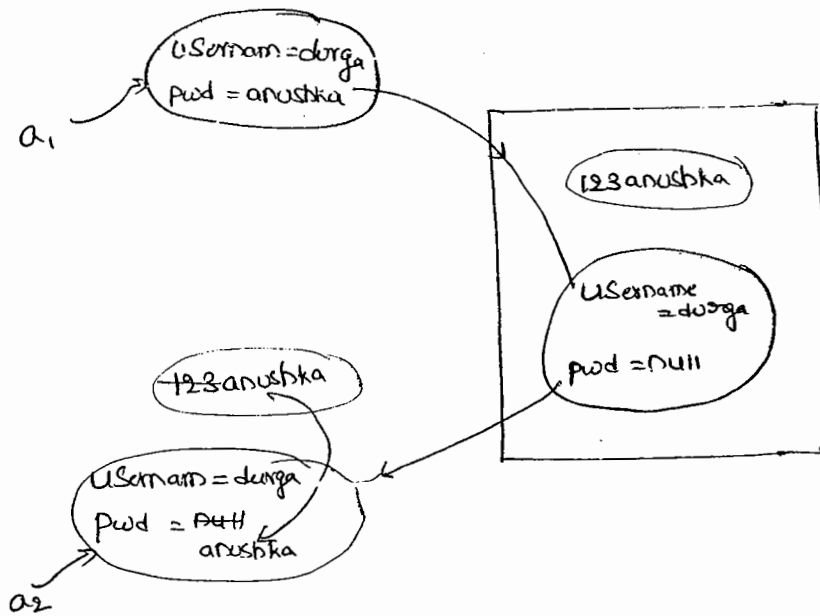 Usernam = durga
pwd = anushka
a1
123anushka
Username
= durga
pwd = null
123anushka
Usernam = durga
pwd = null
anushka
a2